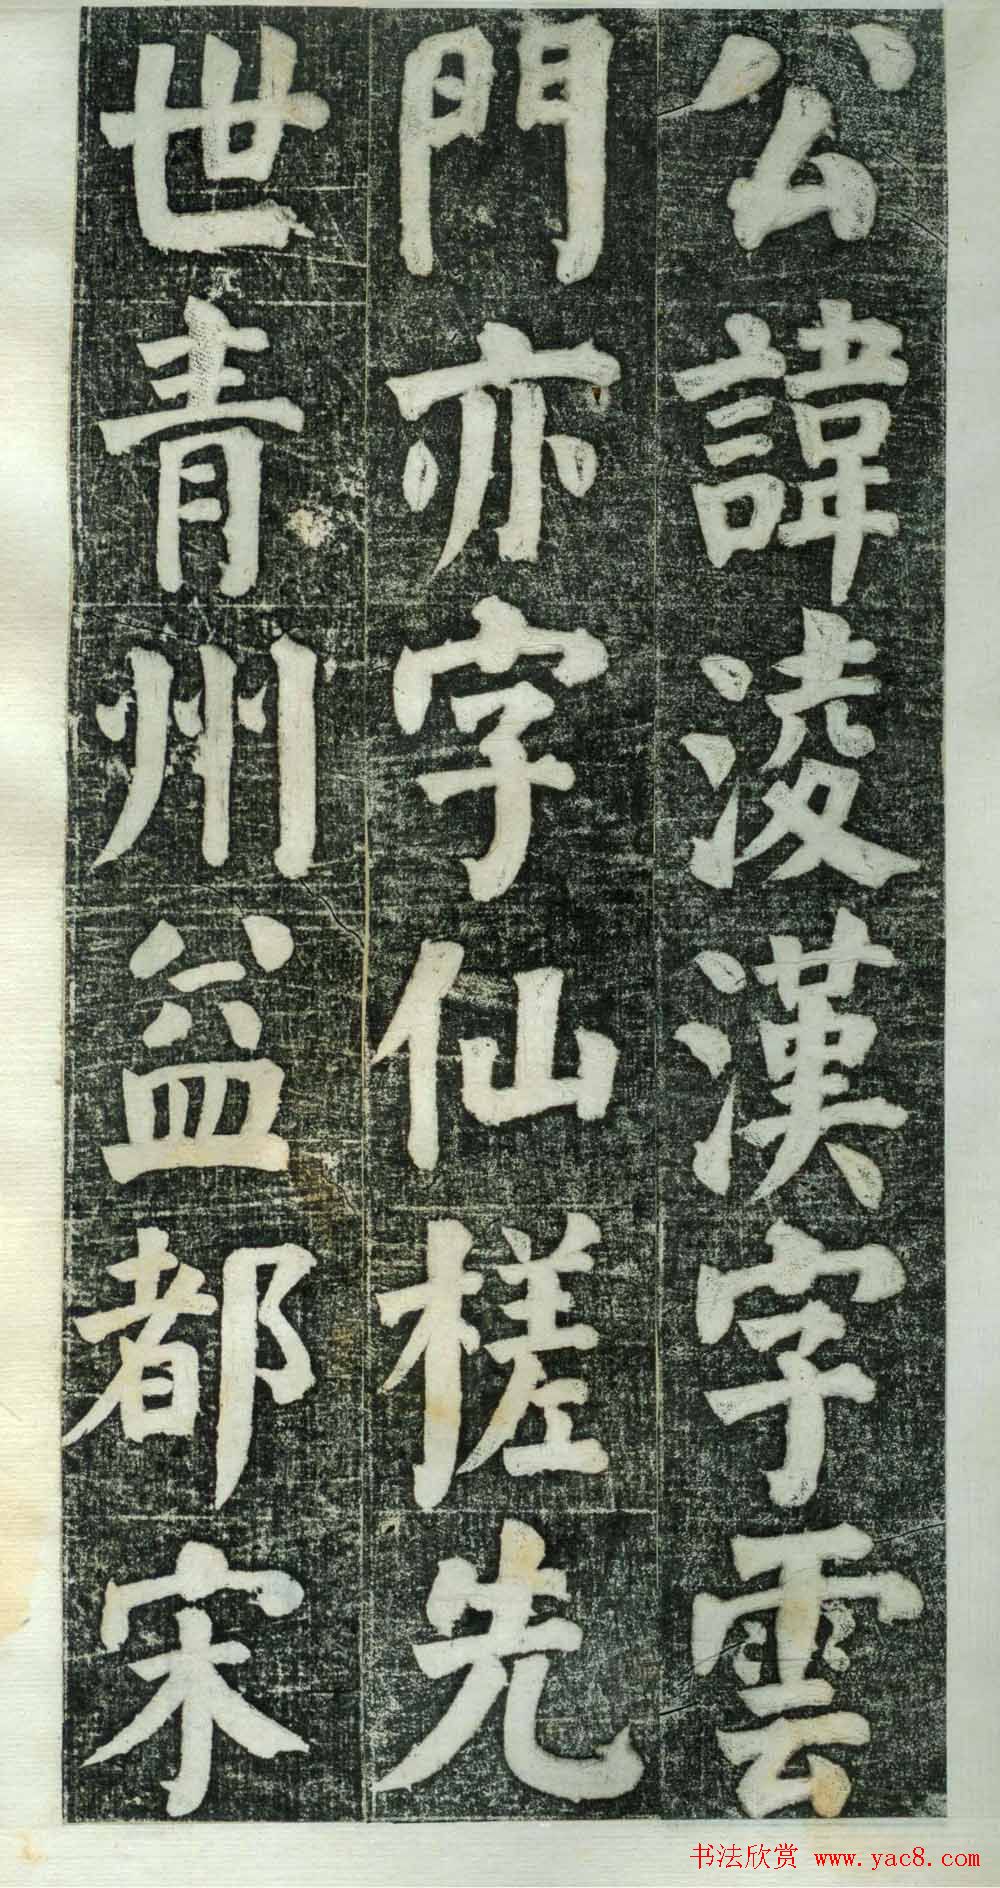 公諱淩漢字雲
門亦字仙槎先
世青州益都宋
书法欣赏 www.yac8.com